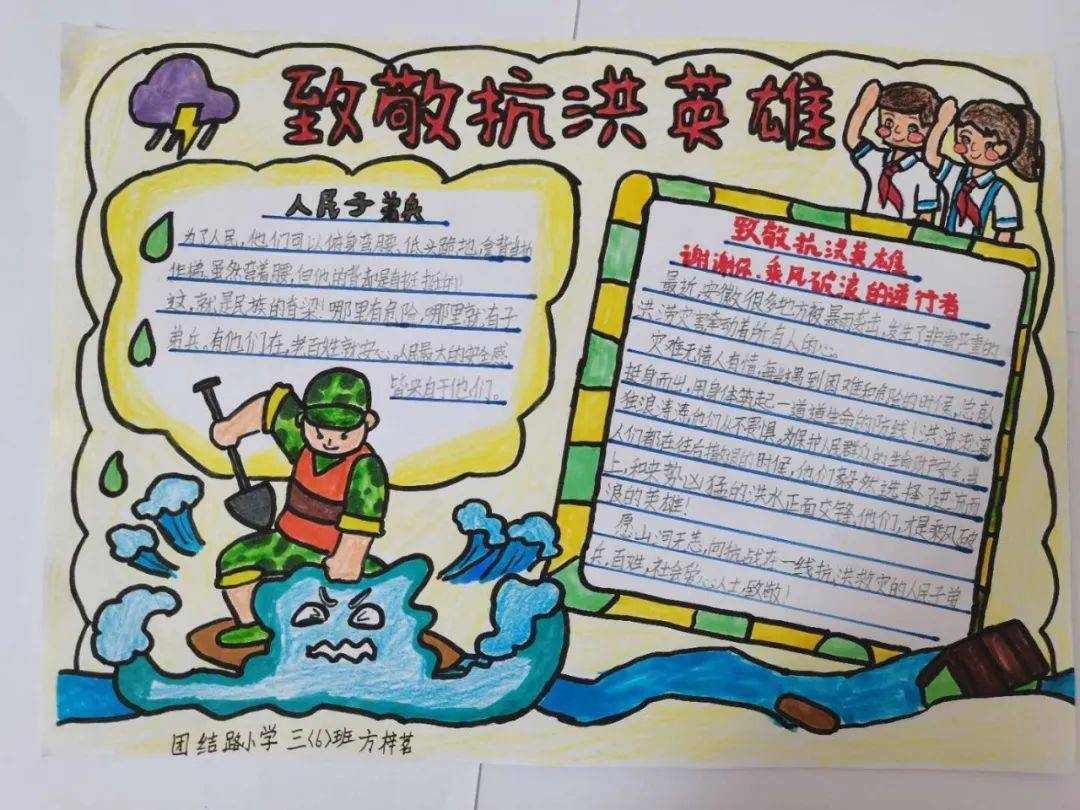 致敬抗洪英雄
人民子弟兵
为了人民,他们可以俯身弯腰、低头跪地,拿背当
作梯。虽然弯着腰,但他的背都是挺的!
这,就是民族的脊梁!哪里有危险,哪里就有子
弟兵,有他们在,老百姓就安心,人民最大的安全感
皆来自于他们。
致敬抗洪英雄
谢谢你,乘风破浪的逆行者
最近,安徽很多地方被暴雨袭击,发生了非常严重的
洪涝灾害牵动着所有人的心。
灾难无情人有情,每当遇到困难和危险的时候,总有人
挺身而出,用身体筑起一道道生命的防线!洪流滚滚
狂浪涛涛,他们从不畏惧,为保护人民群众的生命财产安全,当
人们都在往后撤退的时候,他们毅然选择了逆流而
上,和来势凶猛的洪水正面交锋,他们,才是乘风破
浪的英雄!
愿山河无恙,向抗战在一线抗洪救灾的人民子弟
兵,百姓,社会爱心人士,致敬!
团结路小学 三(6)班 方梓茗